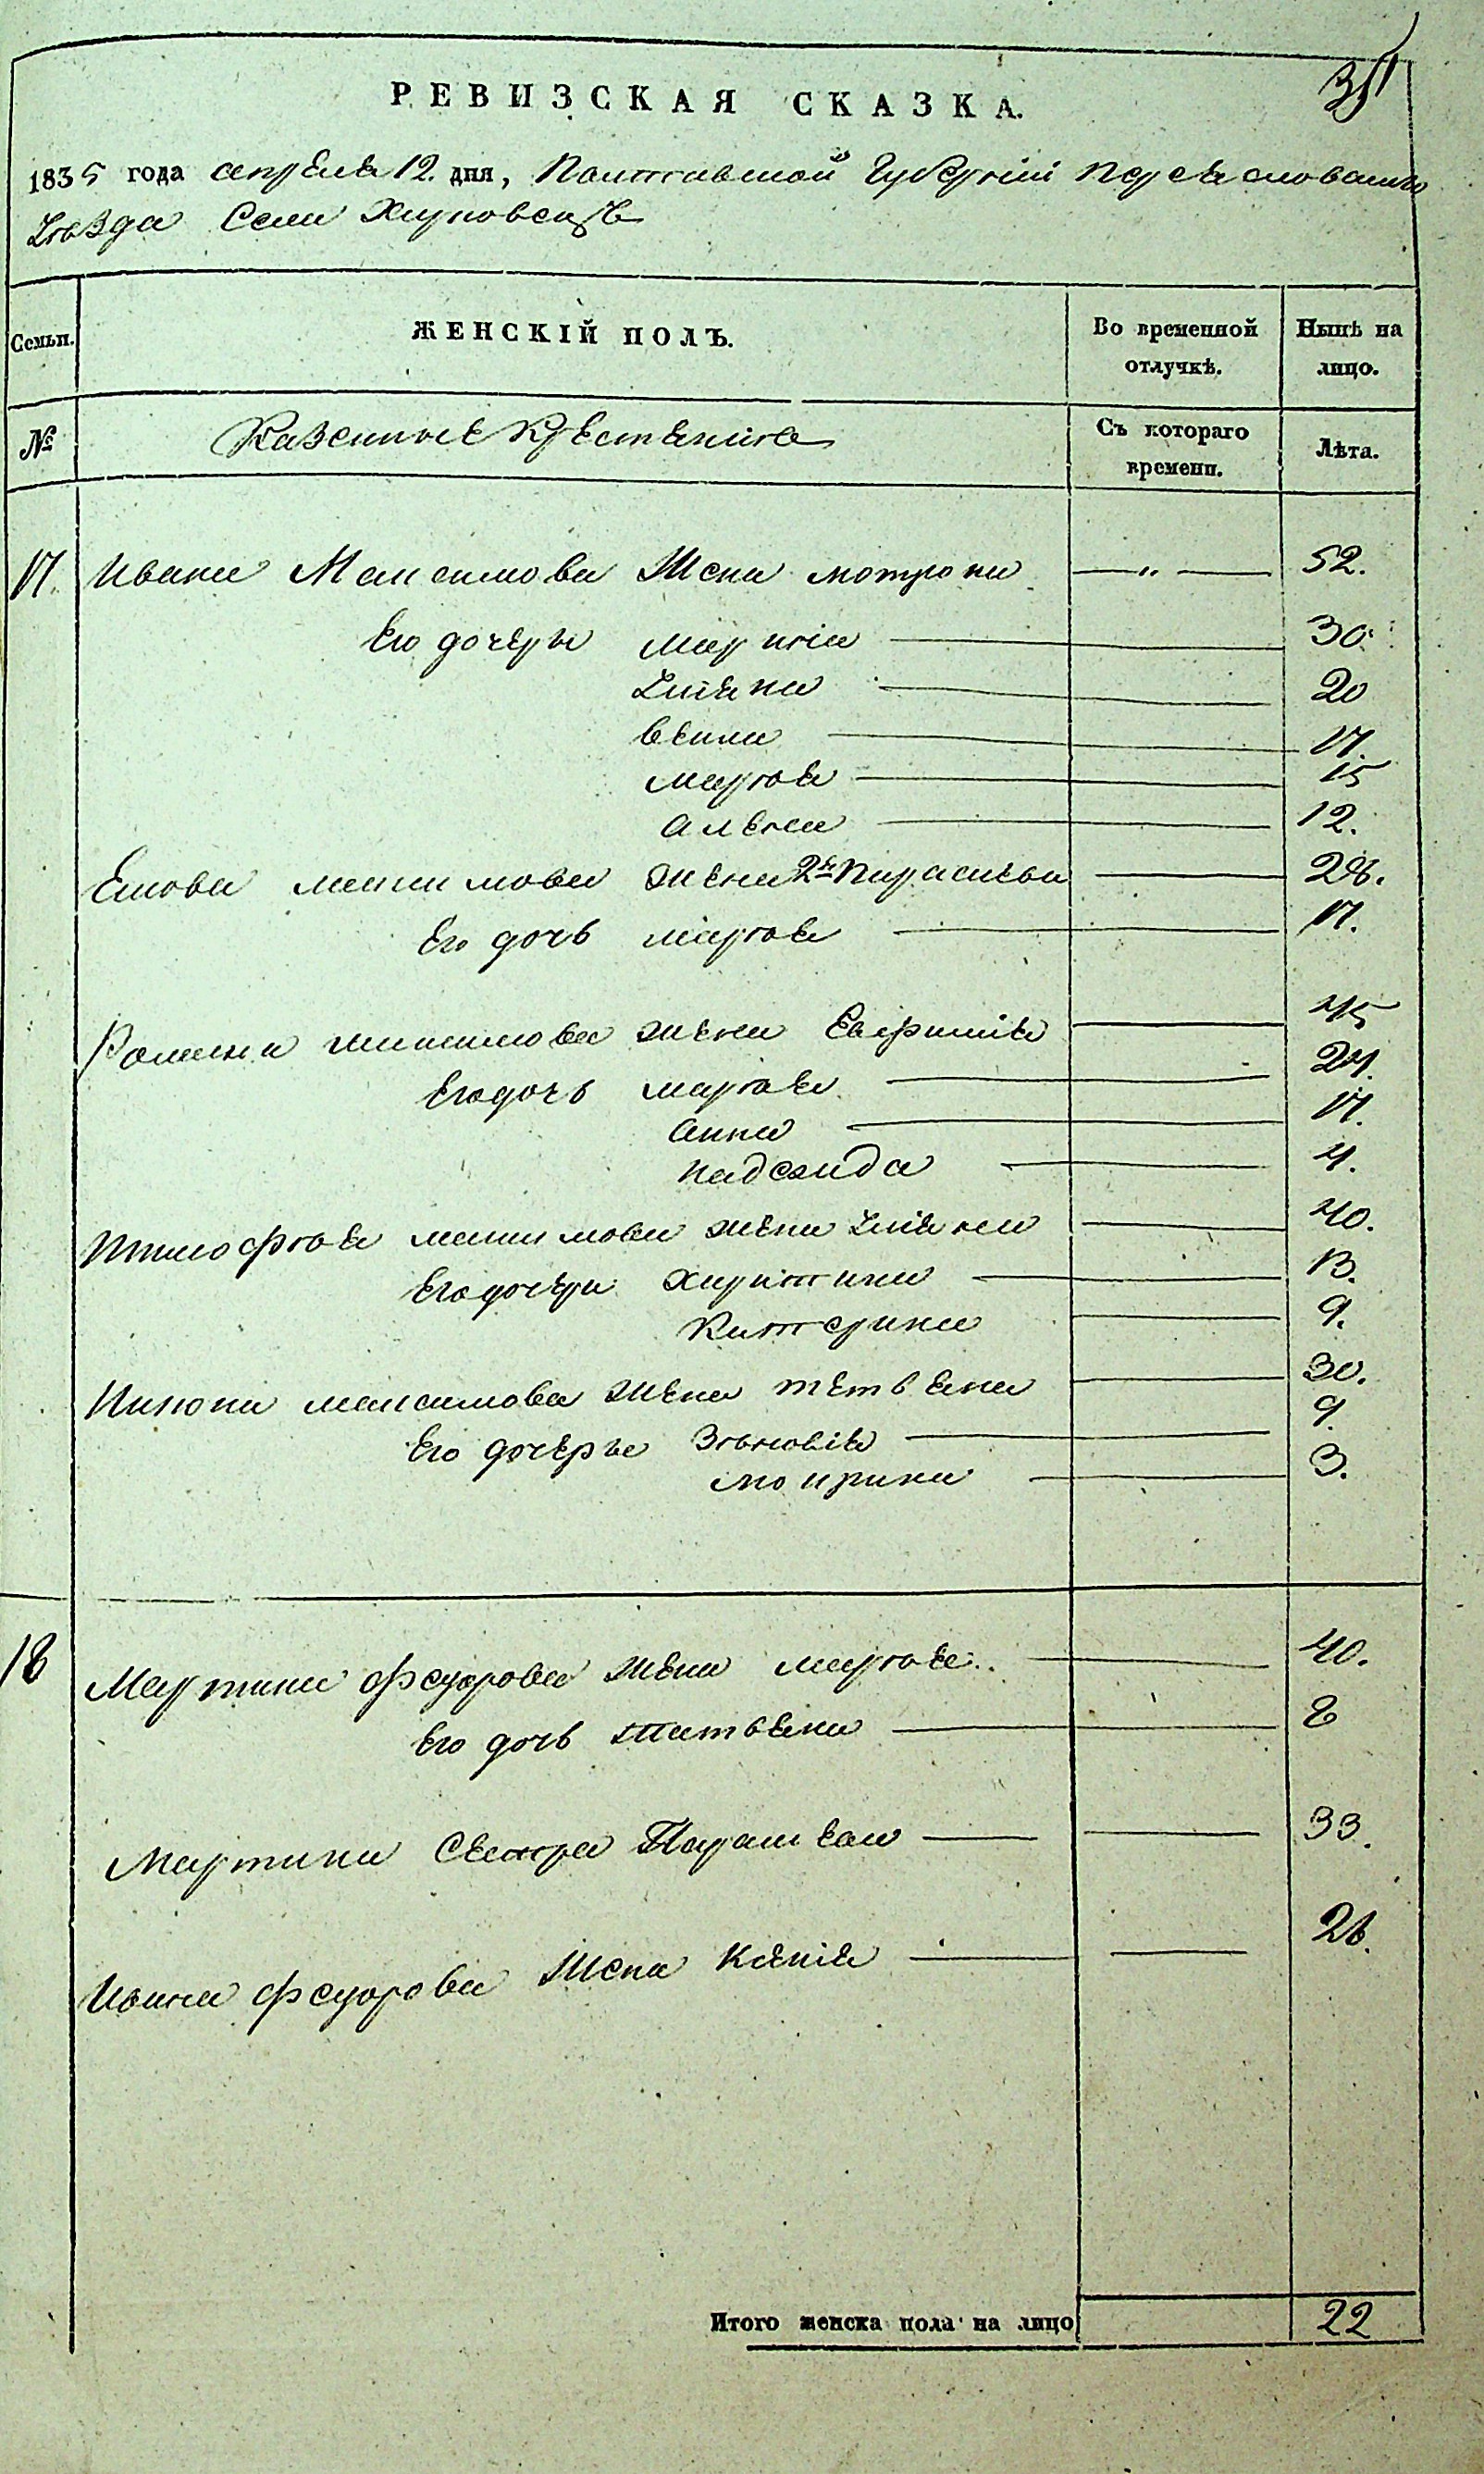 РЕВИЗСКАЯ СКАЗКА.
1835 года апреля 12. дня, Полтавской Губернии Переясловского
уезда Села Хоцковецъ
Семьи.
ЖЕНСКІЙ ПОЛЪ.
Во временной отлучкѣ.
Нынѣ на лицо.
№
Казенные крестьяне
Съ котораго времени.
Лѣта.
17. Ивана Максимова Жена мотрона —„— 52.
Его дочеры марина 30.
Улияна 20
17.
марфа 15
алена 12.
максимова жена 2я Параскева 28.
Его дочь марфа 17.
Романа максимова жена Евфимия 45
Его дочь марфа 24.
анна 17.
надежда 4.
тимофея максимова жена Улияна 40.
Его дочери христина 13.
Катерина 9.
максимова жена тетвяна 30.
Его дочеры Зѣновия 9.
3.
18 Мартина федорова жена марфа 40.
Его дочь татвяна 8
Мартина Сестра Парашева 33.
Ивана федорова Жена Ксения 26.
Итого женска пола на лицо 22